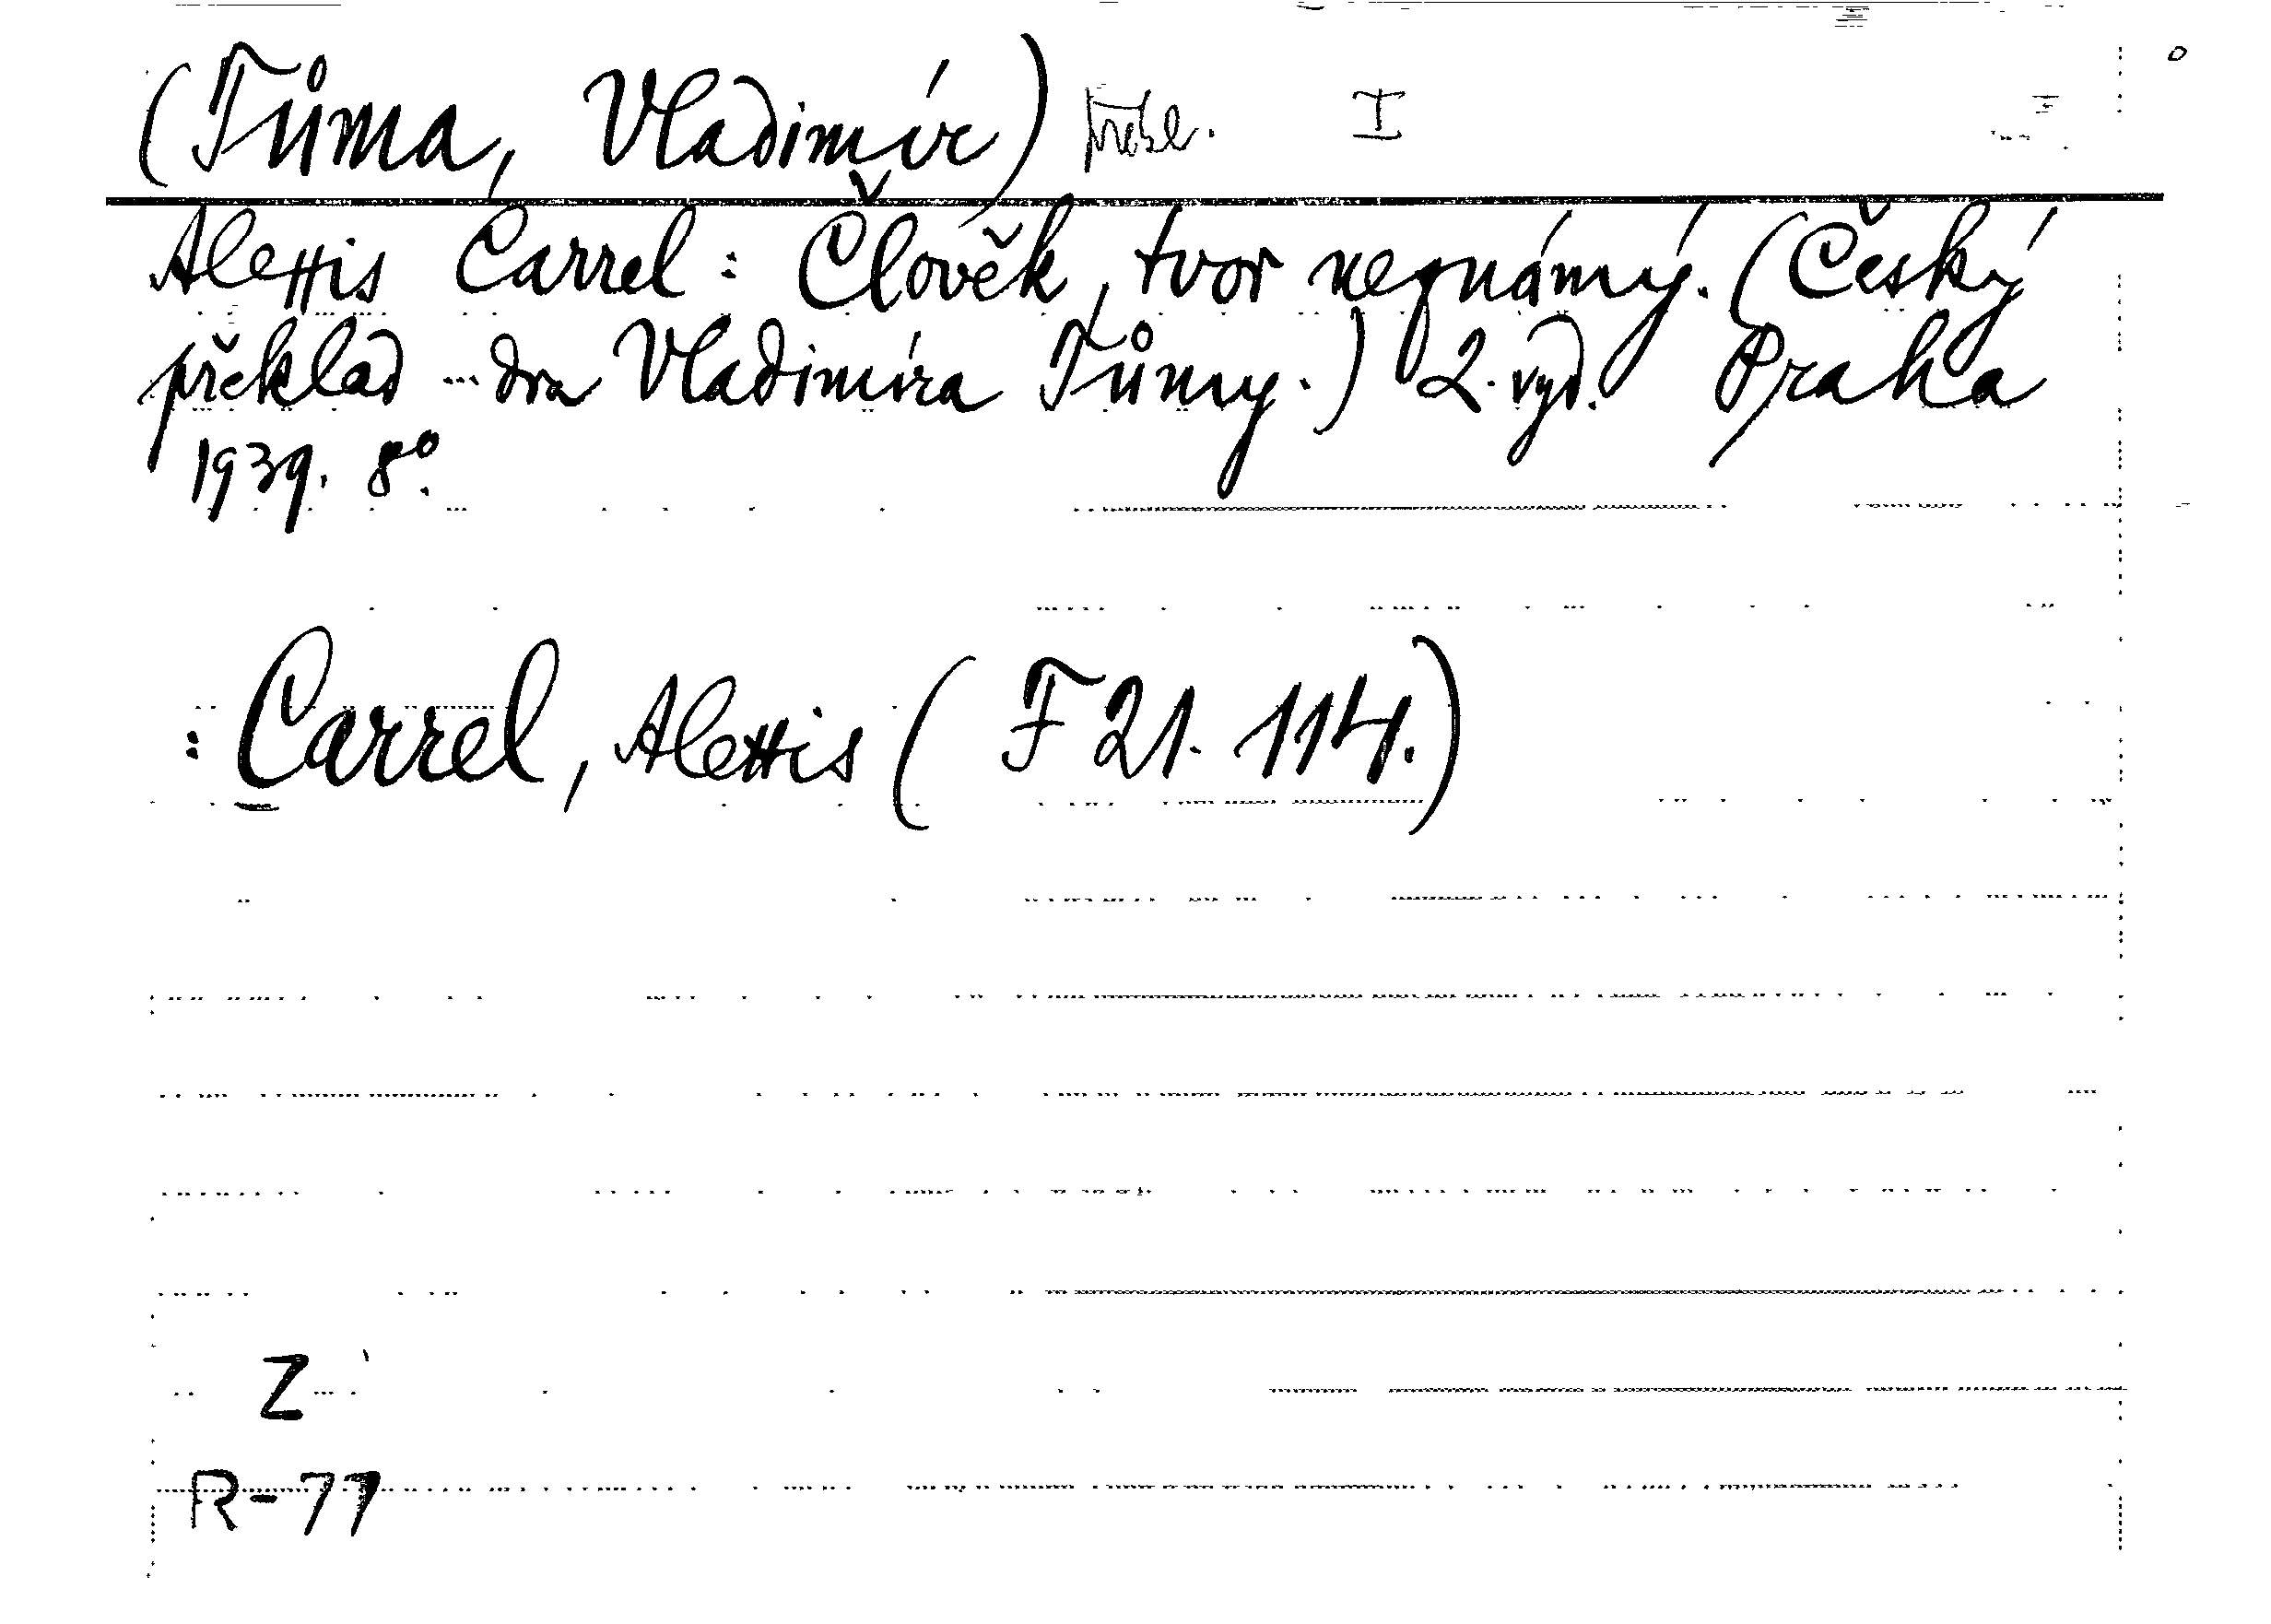 (Tůma, Vladimír) překl. I
Alexis Carrel: Člověk, tvor neznámý. (Český
překlad ... dra Vladimíra Tůmy.) 2. vyd. Praha
1939. 8°.
: Carrel, Alexis (F 21. 114.)
Z
R-77